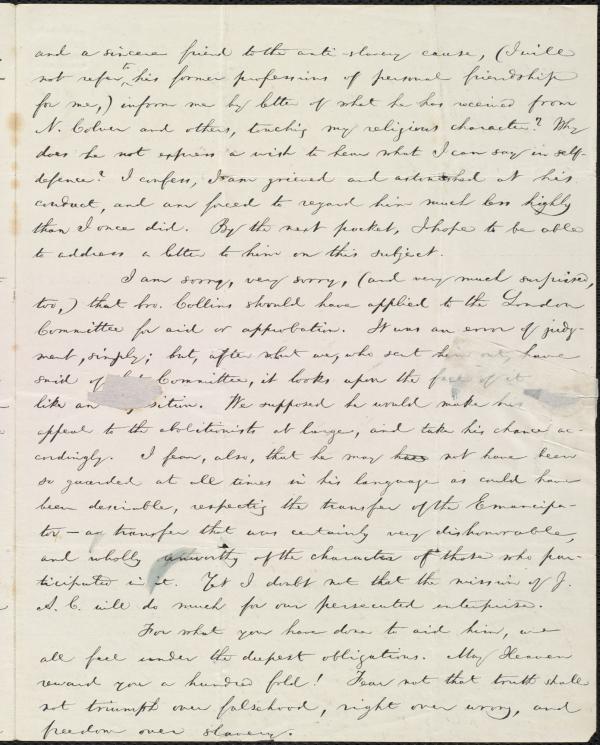 and a sincere friend to the anti-slavery cause, (I will
not refer to his former professions of personal friendship
for me,) inform me by letter of what he has received from
N. Colver and others, touching my religious character? Why
does he not express a wish to hear what I can say in self-
defence? I confess, I am grieved and astonished at his
conduct, and am forced to regard him much less highly
than I once did. By the next packet, I hope to be able
to address a letter to him on this subject.
I am sorry, very sorry, (and very much surprised,
too,) that bro. Collins should have applied to the London
Committee for aid or approbation. It was an error of judg-
ment, simply; but, after what we, who sent him out, have
said of Committee, it looks upon the face of it
like an sition. We supposed he would make his
appeal to the abolitionists at large, and take his chance ac-
cordingly. I fear, also, that he may not have been
so guarded at all times in his language as could have
been desirable, respecting the transfer of the Emancipa-
tor — a transfer that was certainly very dishonorable,
and wholly unworthy of the character of those who par-
ticipated in it. Yet I doubt not that the mission of J.
A. C. will do much for our persecuted enterprise.
For what you have done to aid him, we
all feel under the deepest obligations. May Heaven
reward you a hundred fold! Fear not that truth shall
not triumph over falsehood, right over wrong, and
freedom over slavery.